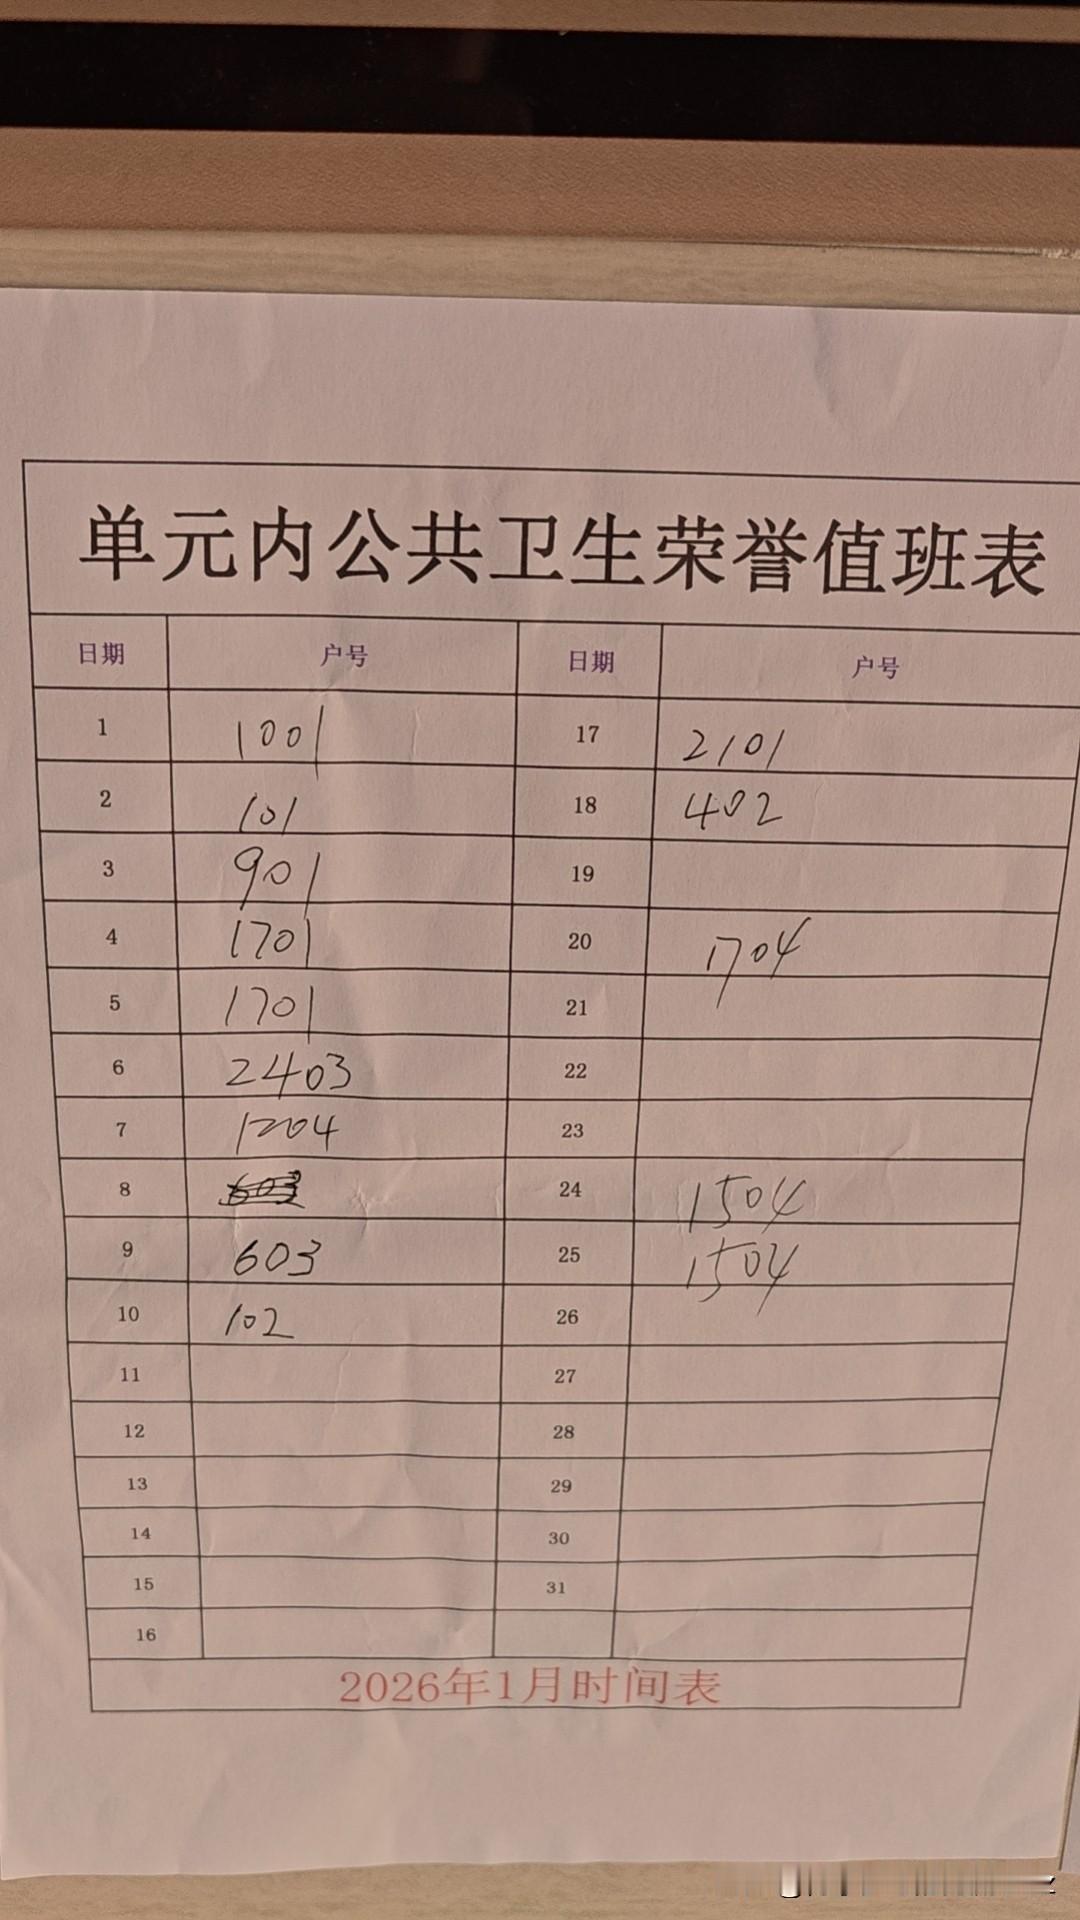 单元内公共卫生荣誉值班表
日期 户号 日期 户号
1 1001 17 2101
2 101 18 402
3 901 19
4 1701 20 1704
5 1701 21
6 2403 22
7 1204 23
8 603 24 1504
9 603 25 1504
10 102 26
11 27
12 28
13 29
14 30
15 31
16
2026年1月时间表